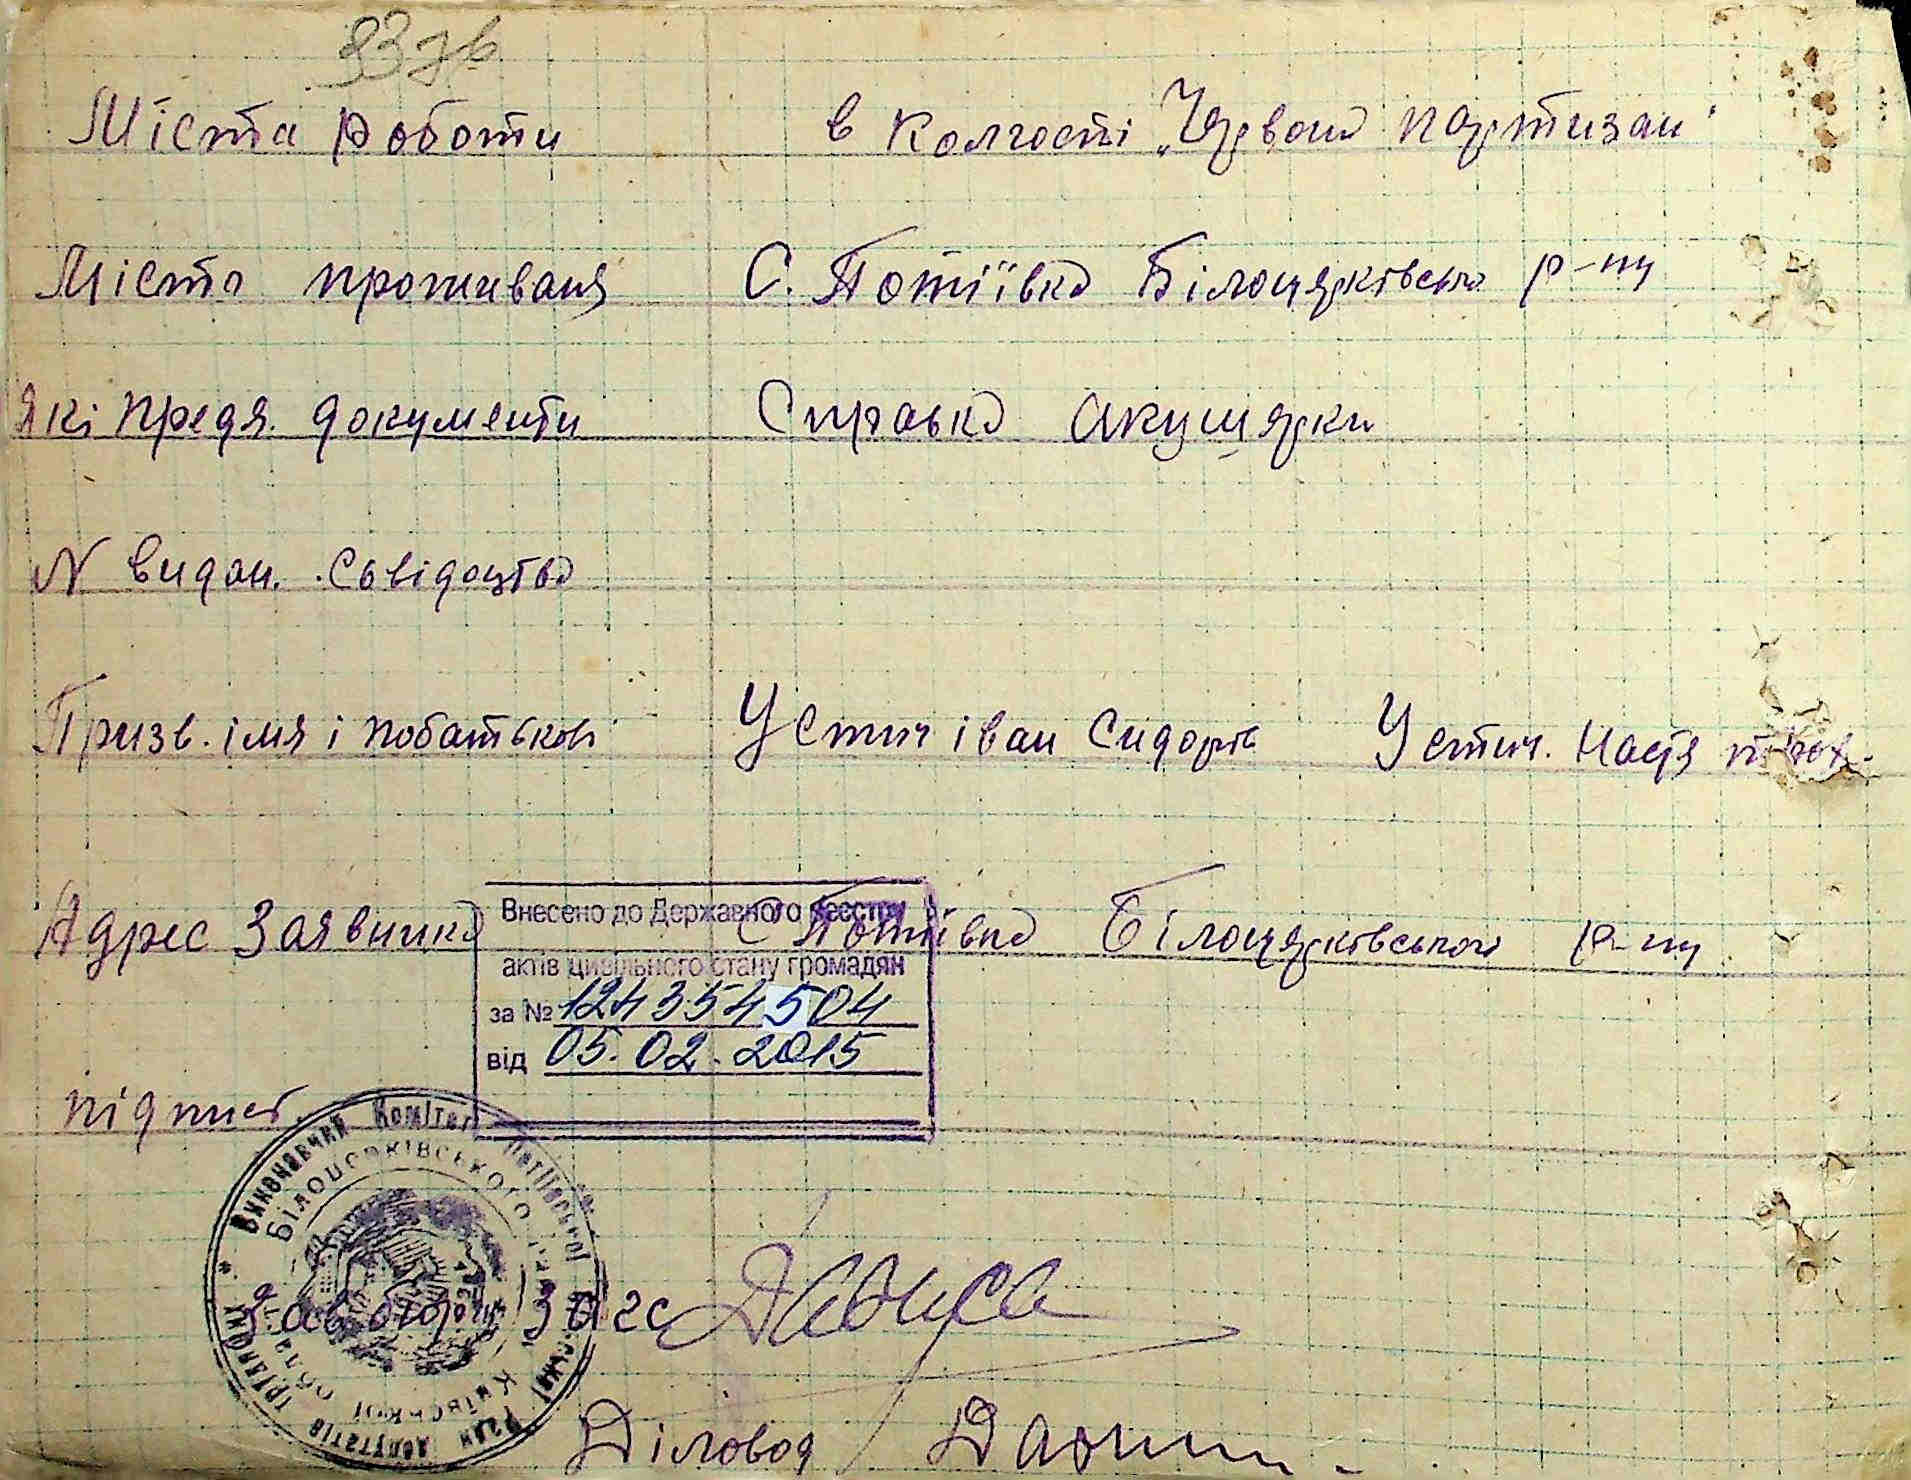 93 зв
Міста роботи в колгості „Червона партизан"
Міста проживаня С. Потіївка Білоцерківська р-ну
Які предя. документи Справка акушерки
N видан. свідоцтва
Призв. імя і побатькові Устич іван Сидорів Устич. Настя
Адрес Заявника С Потіївка Білоцерківського р-ну
Внесено до Державного реєстру
актів цивільного стану громадян
за № 124354504
від 05.02.2015
підпис
Виконавчий Комітет Потіївської сільської Ради депутатів трудящих
Білоцерківського району Київської області
Зав отором Загс
Діловод